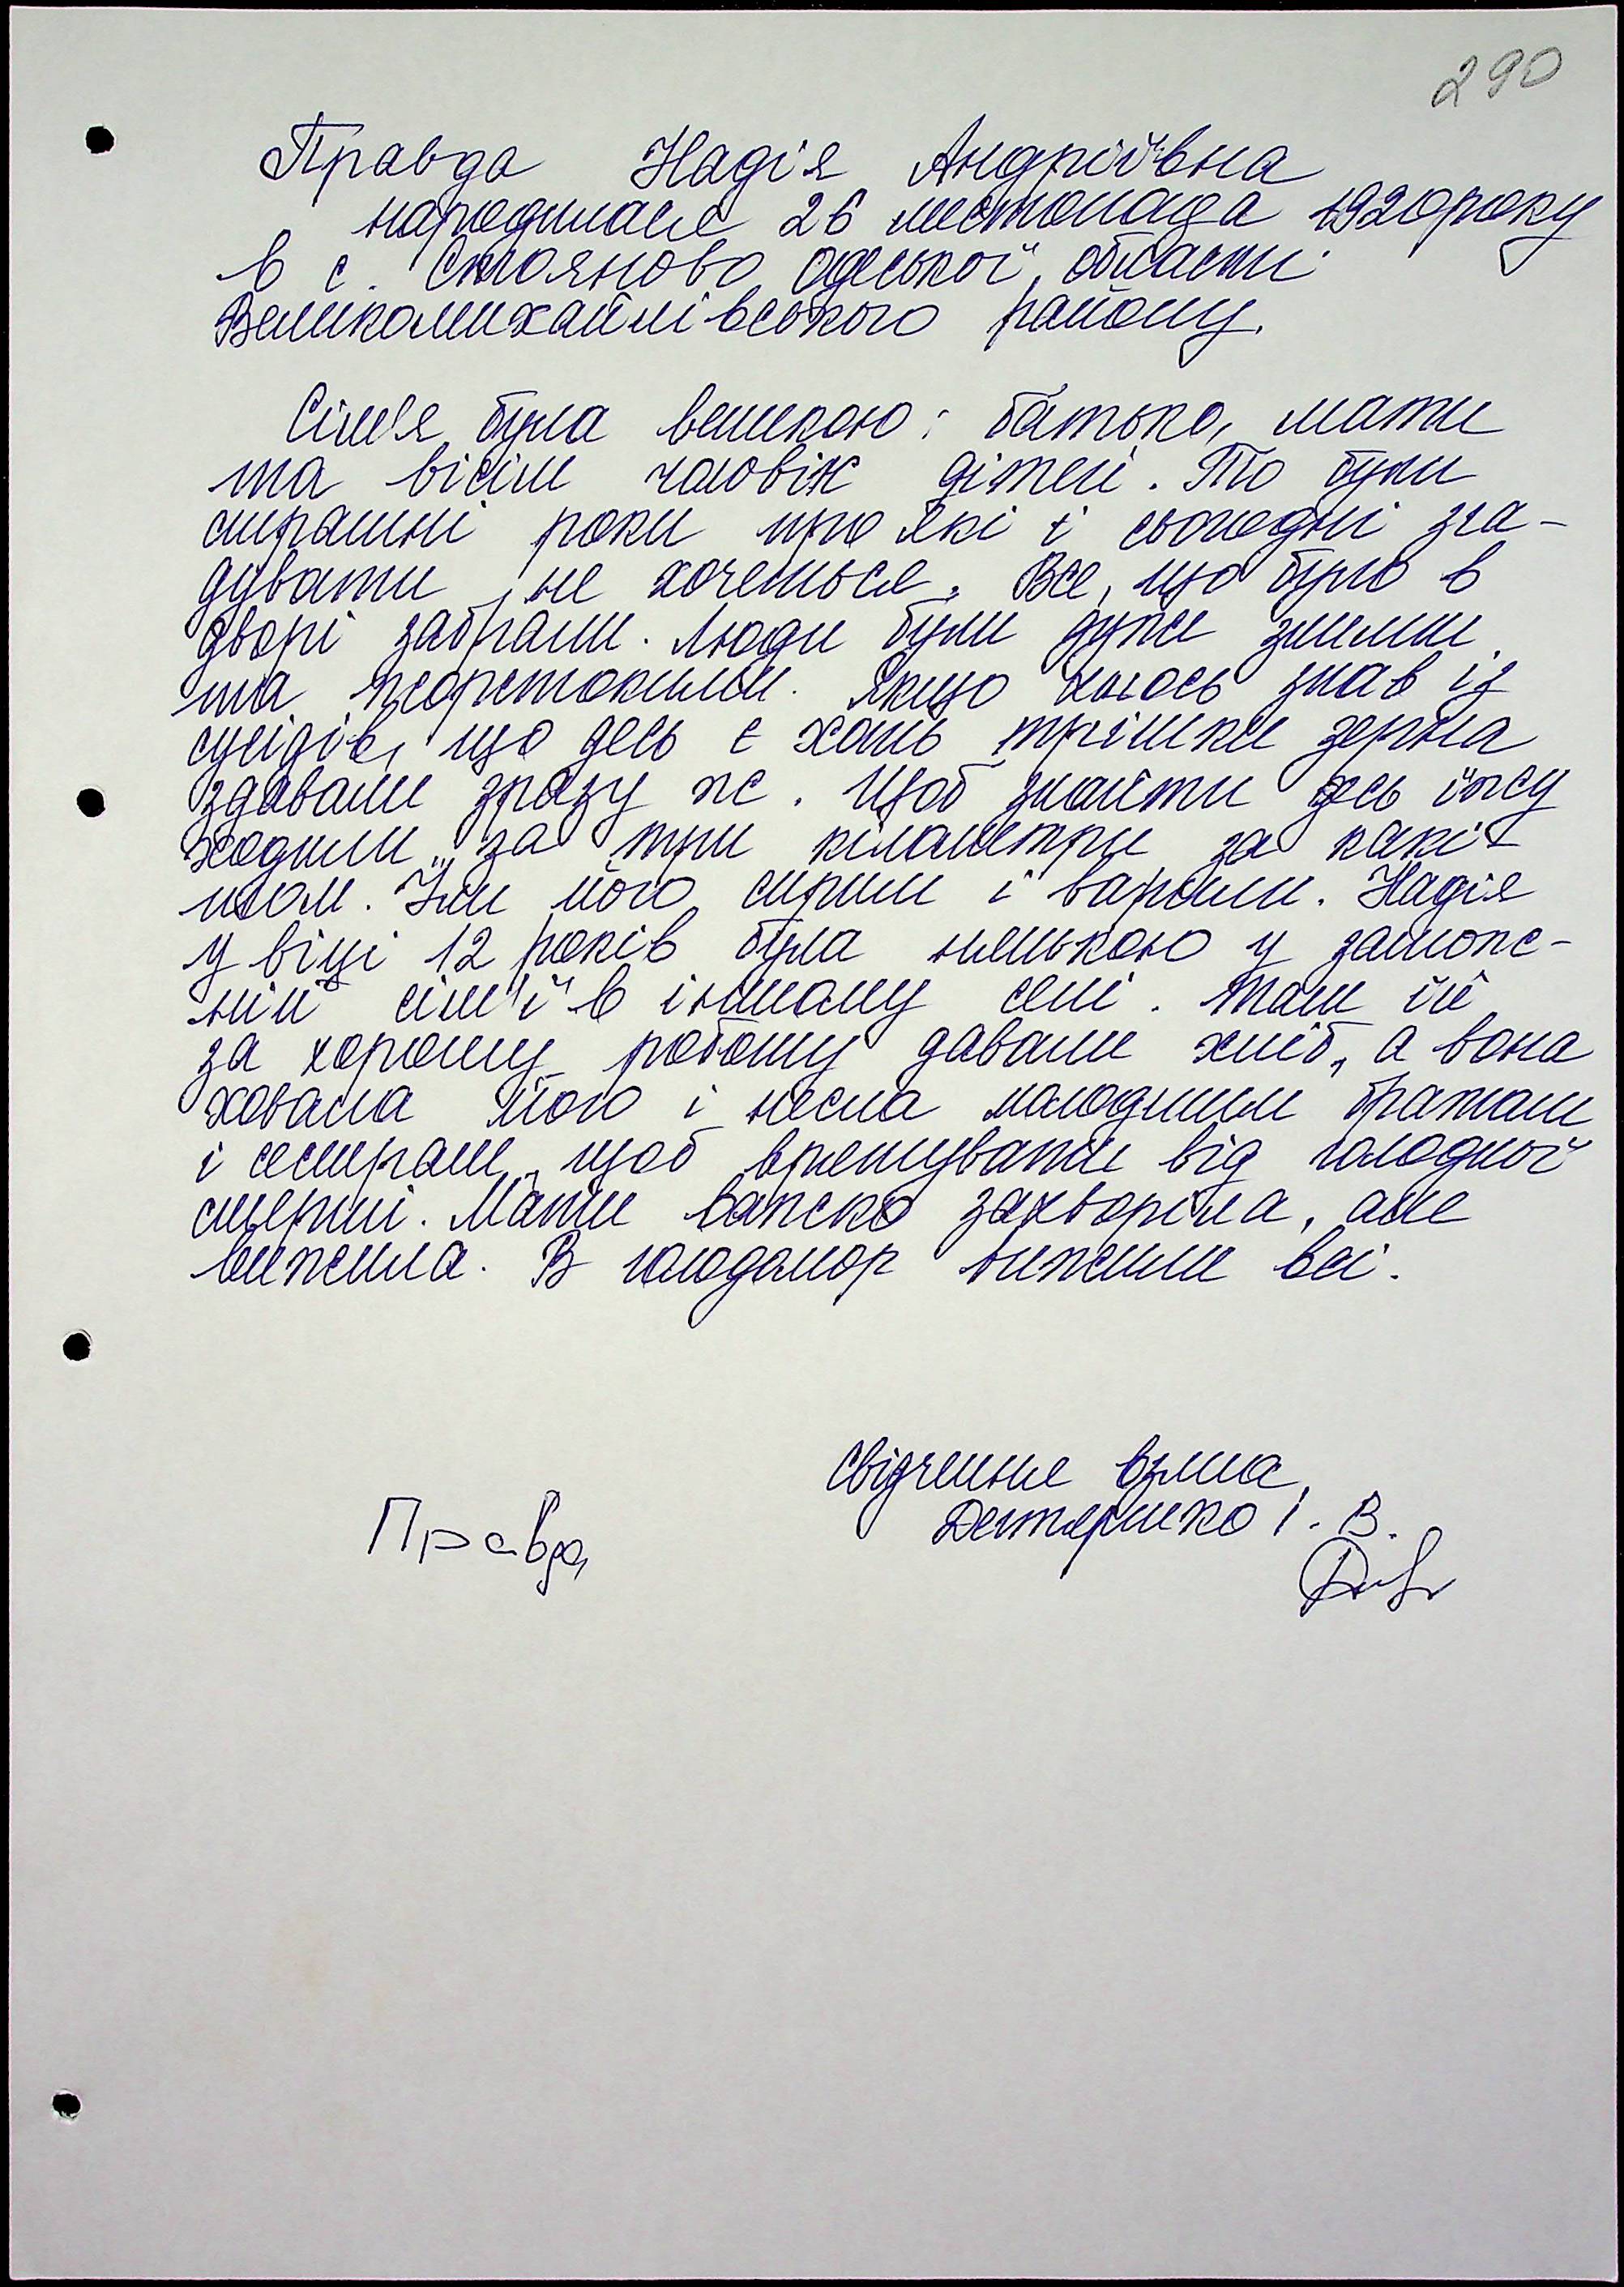 290
Правда Надія Андріївна
народилася 26 листопада 1920року
в с. Стояново одеської області
Великомихайлівського району.
Сім'я була великою: батько, мати
та вісім чоловік дітей. То були
страшні роки про які і сьогодні зга-
дувати не хочеться. Все, що було в
дворі забрали. Люди були дуже злими
та жорстокими. Якщо хтось знав із
сусідів, що десь є хоть трішки зерна
здавали зразу же. Щоб знайти десь їжу
ходили за три кілометри за
Їли його сирим і варили. Надія
у віці 12 років була нянькою у заможе-
ній сім"ї в іншому селі. Там їй
за хорошу роботу давали хліб, а вона
ховала його і несла молодшим братам
і сестрам, щоб врятувати від голодної
смерті. Мати важко захворіла, але
вижила. В голодомор вижили всі.
Свідчення взяла
Дегтяренко І. В.
Правда